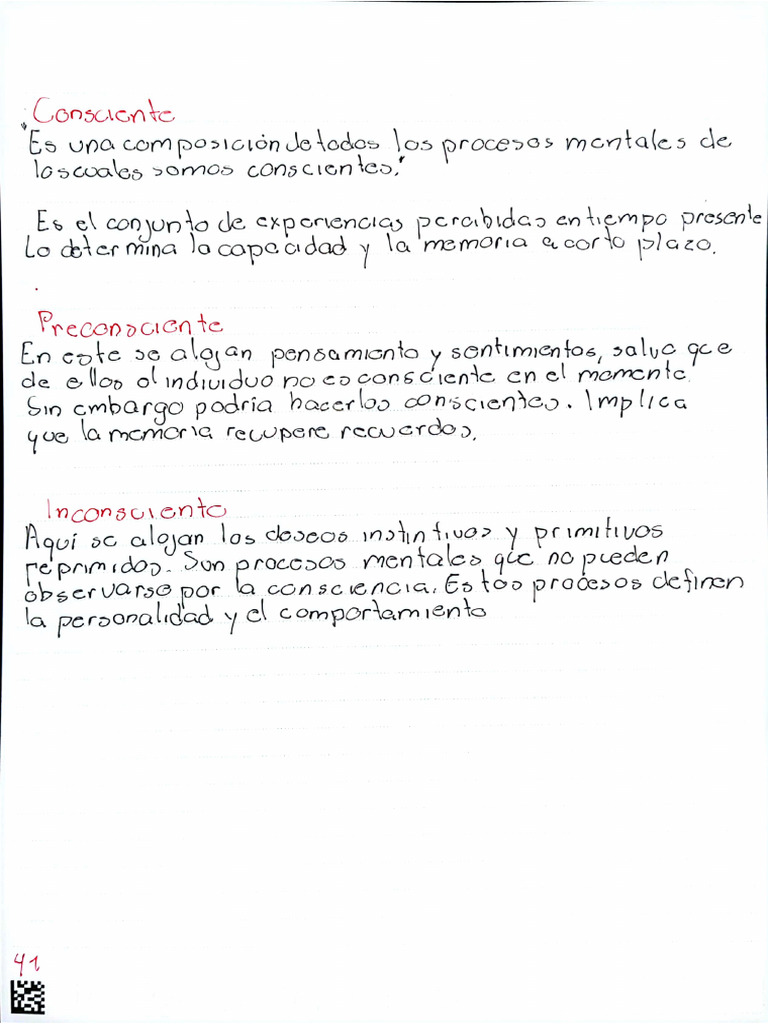 Consciente
"Es una composición de todos los procesos mentales de
los cuales somos conscientes."
Es el conjunto de experiencias percibidas en tiempo presente
Lo determina la capacidad y la memoria a corto plazo.
Preconsciente
En este se alojan pensamiento y sentimientos, salvo que
de ellos el individuo no es consciente en el momento
Sin embargo podría hacerlos conscientes. Implica
que la memoria recupere recuerdos.
Inconsciente
Aquí se alojan los deseos instintivos y primitivos
reprimidos. Son procesos mentales que no pueden
observarse por la consciencia. Estos procesos definen
la personalidad y el comportamiento
41